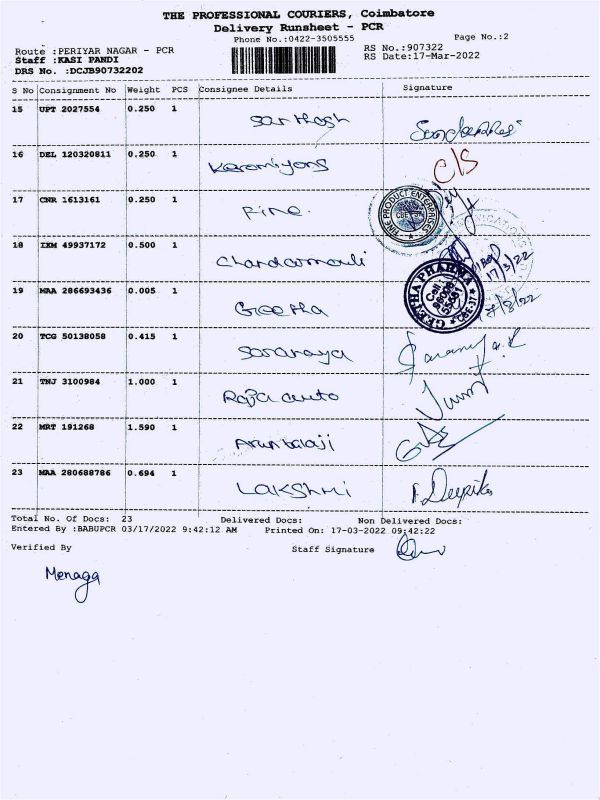 THE PROFESSIONAL COURIERS, Coimbatore
Delivery Runsheet - PCR
Phone No.:0422-3505555
Page No.:2
Route :PERIYAR NAGAR - PCR
RS No.:907322
Staff :KASI PANDI
RS Date:17-Mar-2022
DRS No. :DCJB90732202
S No Consignment No Weight PCS Consignee Details Signature
15 UPT 2027554 0.250 1 Santhosh
16 DEL 120320811 0.250 1 C/S
17 CNR 1613161 0.250 1 Fine. FINE PRODUCT ENTERPRISES
18 IXM 49937172 0.500 1 Chandamouli 17/3/22
19 MAA 286693436 0.005 1 Geetha GEETHA PHARMA Call: CBE-37
20 TCG 50138058 0.415 1 Saranaya
21 TNJ 3100984 1.000 1 Raja auto
22 MRT 191268 1.590 1 Arunbalaji
23 MAA 280688786 0.694 1 LAKSHMI Deepika
Total No. Of Docs: 23 Delivered Docs: Non Delivered Docs:
Entered By :BABUPCR 03/17/2022 9:42:12 AM Printed On: 17-03-2022 09:42:22
Verified By Staff Signature
Menaga